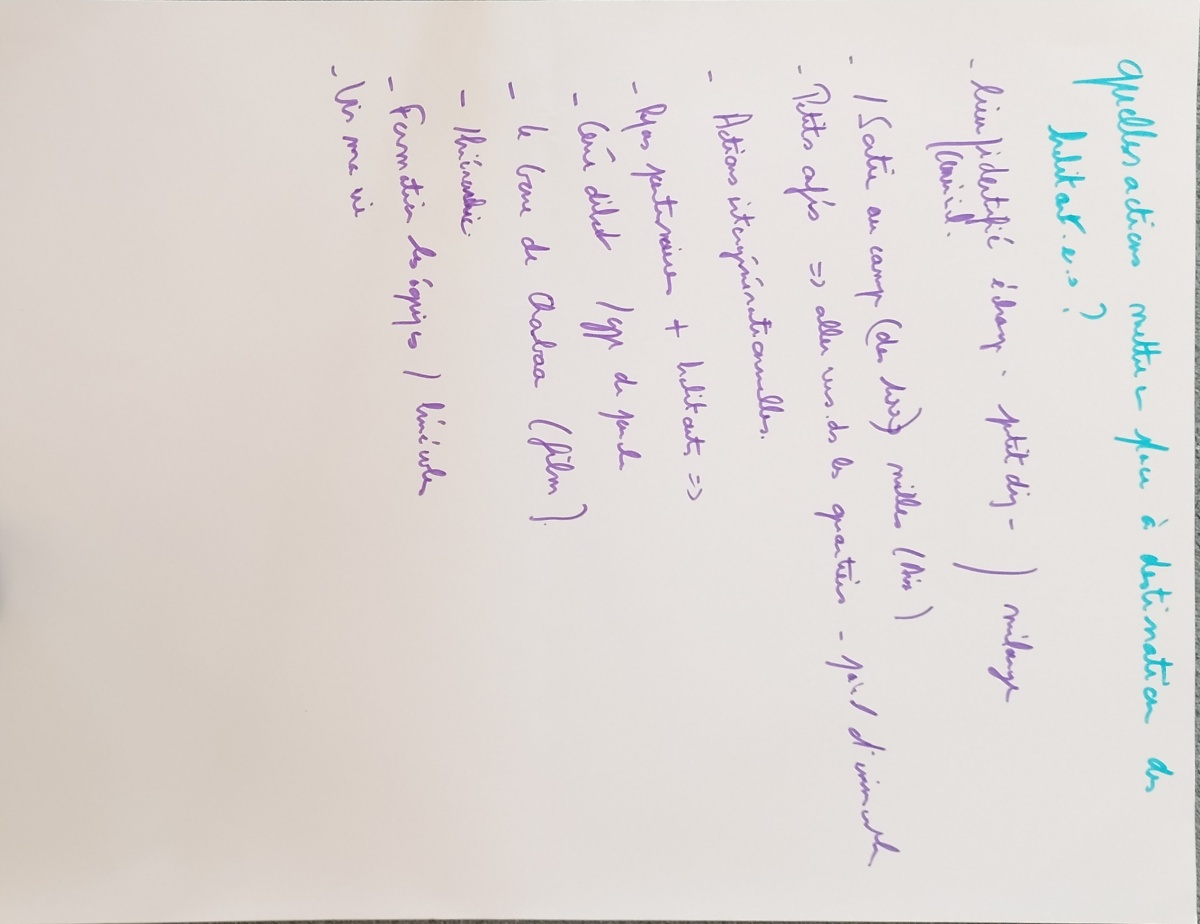 Quelles actions mettre en place à destination des
habitant.e.s ?
- lieu identifié échange - petit dej - ) mélange
convivial.
- Sortie au camp (des    ) milles (Aix)
- Petits cafés => aller vers ds les quartiers - pied d'immeuble
- Actions intergénérationnelles.
- Repas partenaires + habitants =>
- Ciné débat / gpe de parole
- le gone de Chabaa (film).
- Itinérance.
- Formation des équipes / bénévoles
- Vis ma vie